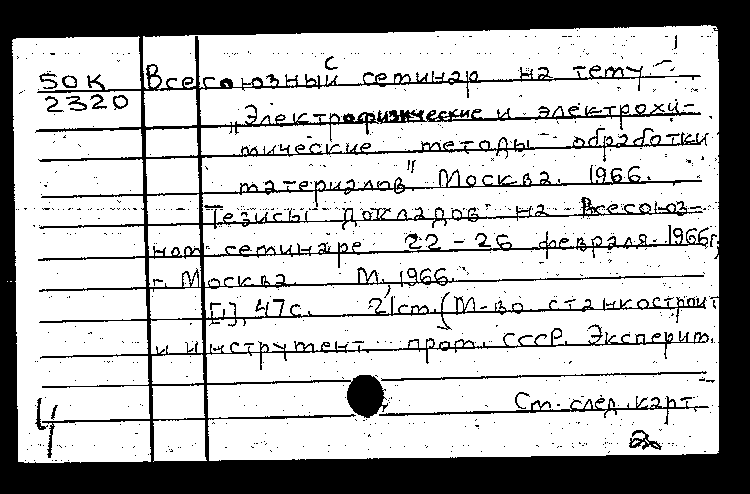 50К Всесоюзный семинар на тему
С
2320 „Электрофизические и электрохи-
мические методы обработки
материалов". Москва. 1966.
Тезисы докладов на Всесоюз-
ном семинаре 22-26 февраля 1966г,
г. Москва. М., 1966.
[1], 47с. 21см. (М-во станкостроит
и инструмент. пром. СССР. Эксперит.
См. след. карт.
4
2